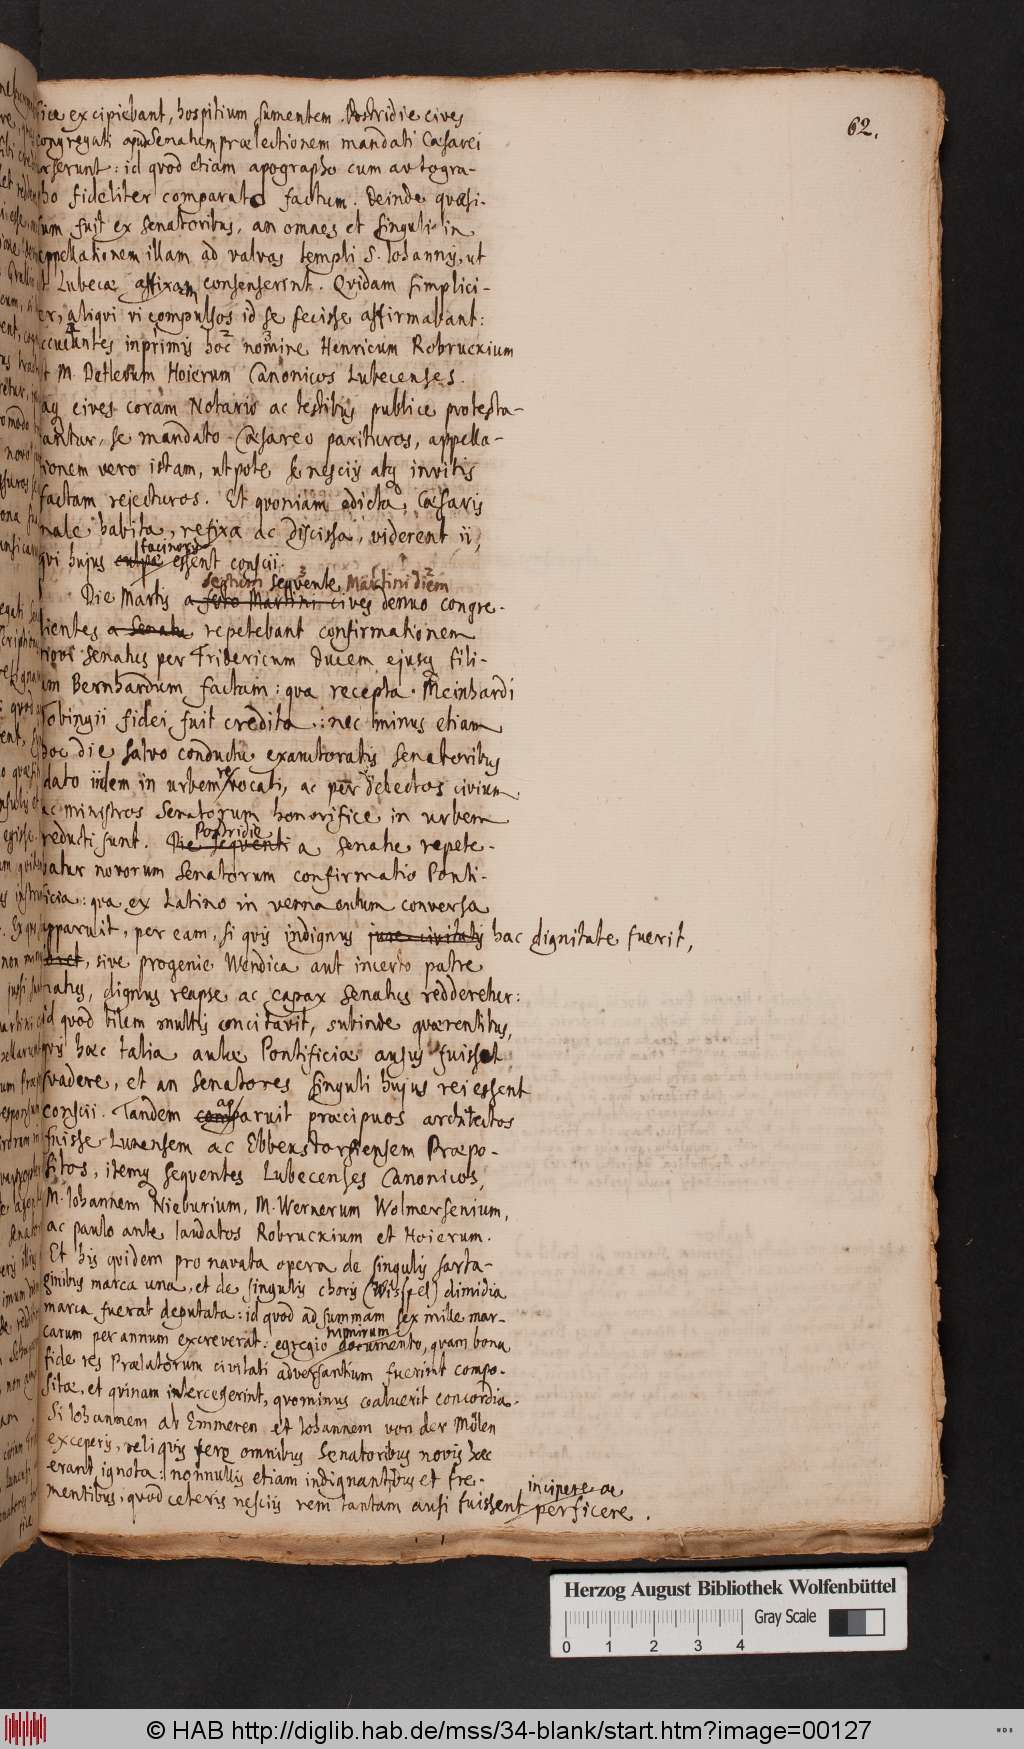 62.
fice excipiebant, hospitium sumentem. Postridie cives
congregati apud Senatum prælectionem mandati Cæsarei
urserunt: id quod etiam apographo cum autogra-
pho fideliter comparato factum. Deinde quæsi-
tum fuit ex Senatoribus, an omnes et singuli in
appellationem illam ad valvas templi S. Iohannis, ut
et Lubecæ affixam consenserint. Qvidam simplici-
ter, aliqvi vi compulsos id se fecisse affirmabant:
inprimis hoc nomine Henricum Robruckium
et M. Detlevum Hoierum Canonicos Lubecenses.
aq cives coram Notario ac testibus publice protesta-
bantur, se mandato Cæsareo parituros, appella-
tionem vero istam, utpote se nesciis atq invitis
factam rejecturos. Et qvoniam edicta Cæsaris
male habita, refixa ac discissa, viderent ii,
facinoris
qvi hujus culpæ essent conscii.
seqvente Martini diem
Die Martis a festo Martini cives denuo congre-
dientes a Senatu repetebant confirmationem
novi Senatus per Fridericum Ducem ejusq fili-
um Bernhardum factam: qva recepta Meinhardi
Tobingii fidei fuit credita: nec minus etiam
hoc die salvo conductu exauctoratis Senatoribus
dato iidem in urbem revocati, ac per delectos civium
ac ministros Senatorum honorifice in urbem
Postridie
reducti sunt. Die seqventi a Senatu repete-
batur novorum Senatorum confirmatio Ponti-
ficia: qva ex Latino in vernaculum conversa
apparuit, per eam, si qvis indignus jure civitatis hac dignitate fuerit,
sive progenie Wendica aut incerto patre
natus, dignus reapse ac capax Senatus redderetur:
id quod bilem multis concitavit, subinde qværentibus,
qvis hæc talia aulæ Pontificiæ ausus fuisset
svadere, et an Senatores singuli hujus rei essent
conscii. Tandem comparuit præcipuos architectos
ap
fuisse Lunensem ac Ebbenstorfiensem Præpo-
sitos, itemq seqventes Lubecenses Canonicos,
M. Iohannem Nieburium, M. Wernerum Wolmersenium,
ac paulo ante laudatos Robruckium et Hoierum.
Et his qvidem pro navata opera de singulis sarta-
ginibus marca una, et de singulis choris (Wisspel) dimidia
marca fuerat deputata: id quod ad summam sex mille mar-
carum per annum excreverat: egregio documento, qvam bona
nimirum
fide res Prælatorum civitati adversantium fuerint compo-
sitæ, et qvinam intercesserint, qvominus coaluerit concordia.
Si Iohannem ab Emmeren et Iohannem von der Mölen
exceperis, reliqvis fere omnibus Senatoribus novis hæc
erant ignota: nonnullis etiam indignantibus et fre-
mentibus, qvod ceteris nesciis rem tantam ausi fuissent incipere ac
perficere.
Herzog August Bibliothek Wolfenbüttel
Gray Scale
0 1 2 3 4
© HAB http://diglib.hab.de/mss/34-blank/start.htm?image=00127